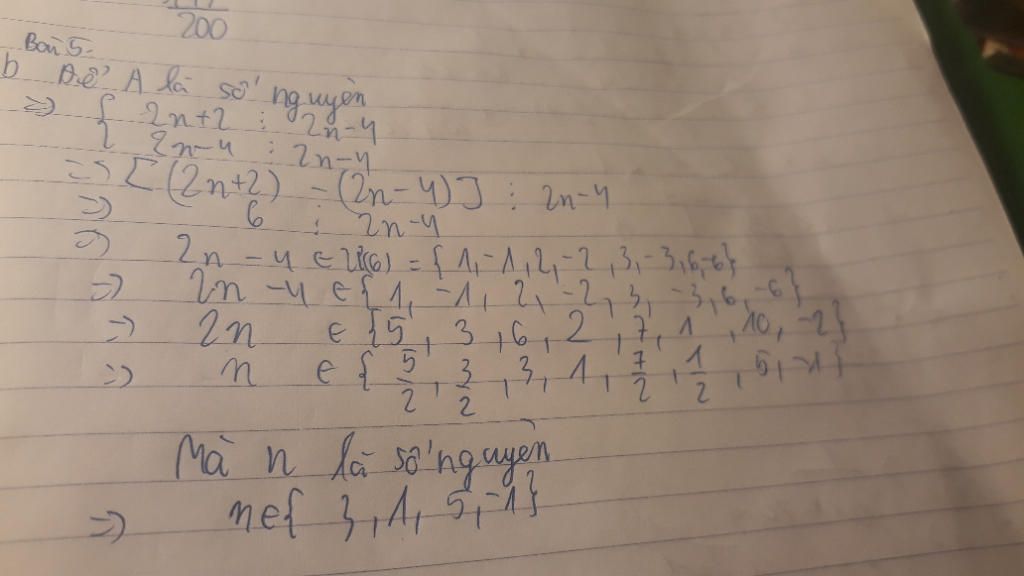 200
Bài 5:
b Để A là số nguyên
=> { 2n+2 ⋮ 2n-4
{ 2n-4 ⋮ 2n-4
=> [(2n+2) - (2n-4)] ⋮ 2n-4
=> 6 ⋮ 2n-4
=> 2n-4 ∈ Ư(6) = {1,-1,2,-2,3,-3,6,-6}
=> 2n-4 ∈ {1, -1, 2, -2, 3, -3, 6, -6}
=> 2n ∈ {5, 3, 6, 2, 7, 1, 10, -2}
=> n ∈ {5/2, 3/2, 3, 1, 7/2, 1/2, 5, -1}
Mà n là số nguyên
=> n∈{ 3, 1, 5, -1}